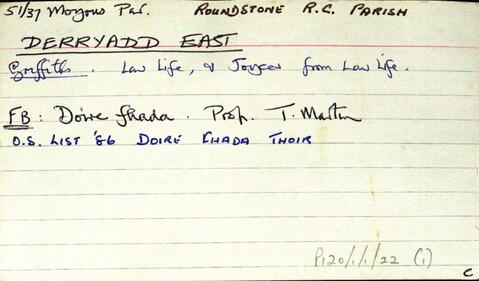 51/37 Moyrus Par. ROUNDSTONE R.C. PARISH
DERRYADD EAST
Griffiths. Law Life, & Joyces from Law Life.
FB: Doire fhada. Prop. T. Martin
O.S. LIST '86 DOIRE FHADA THOIR
P120/1/1/22 (1)
C